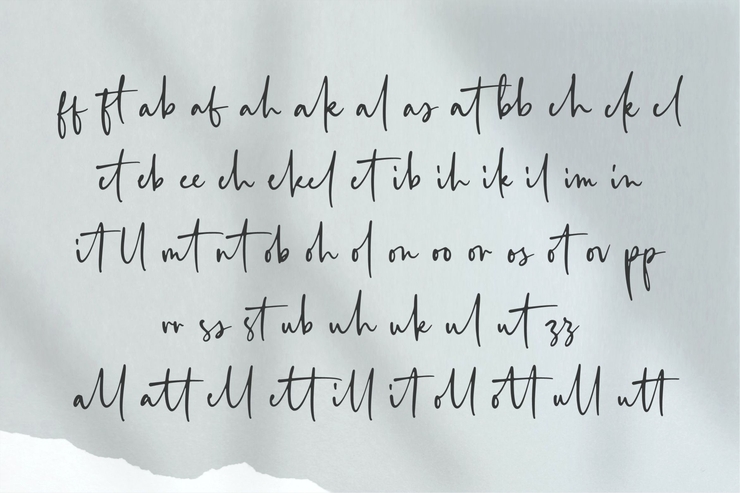 ff ft ab af ah ak al as at bb ch ck cl
ct eb ee eh ekel et ib ih ik il im in
it ll mt nt ob oh ol on oo or os ot ov pp
rr ss st ub uh uk ul ut zz
all att ell ett ill itt oll ott ull utt